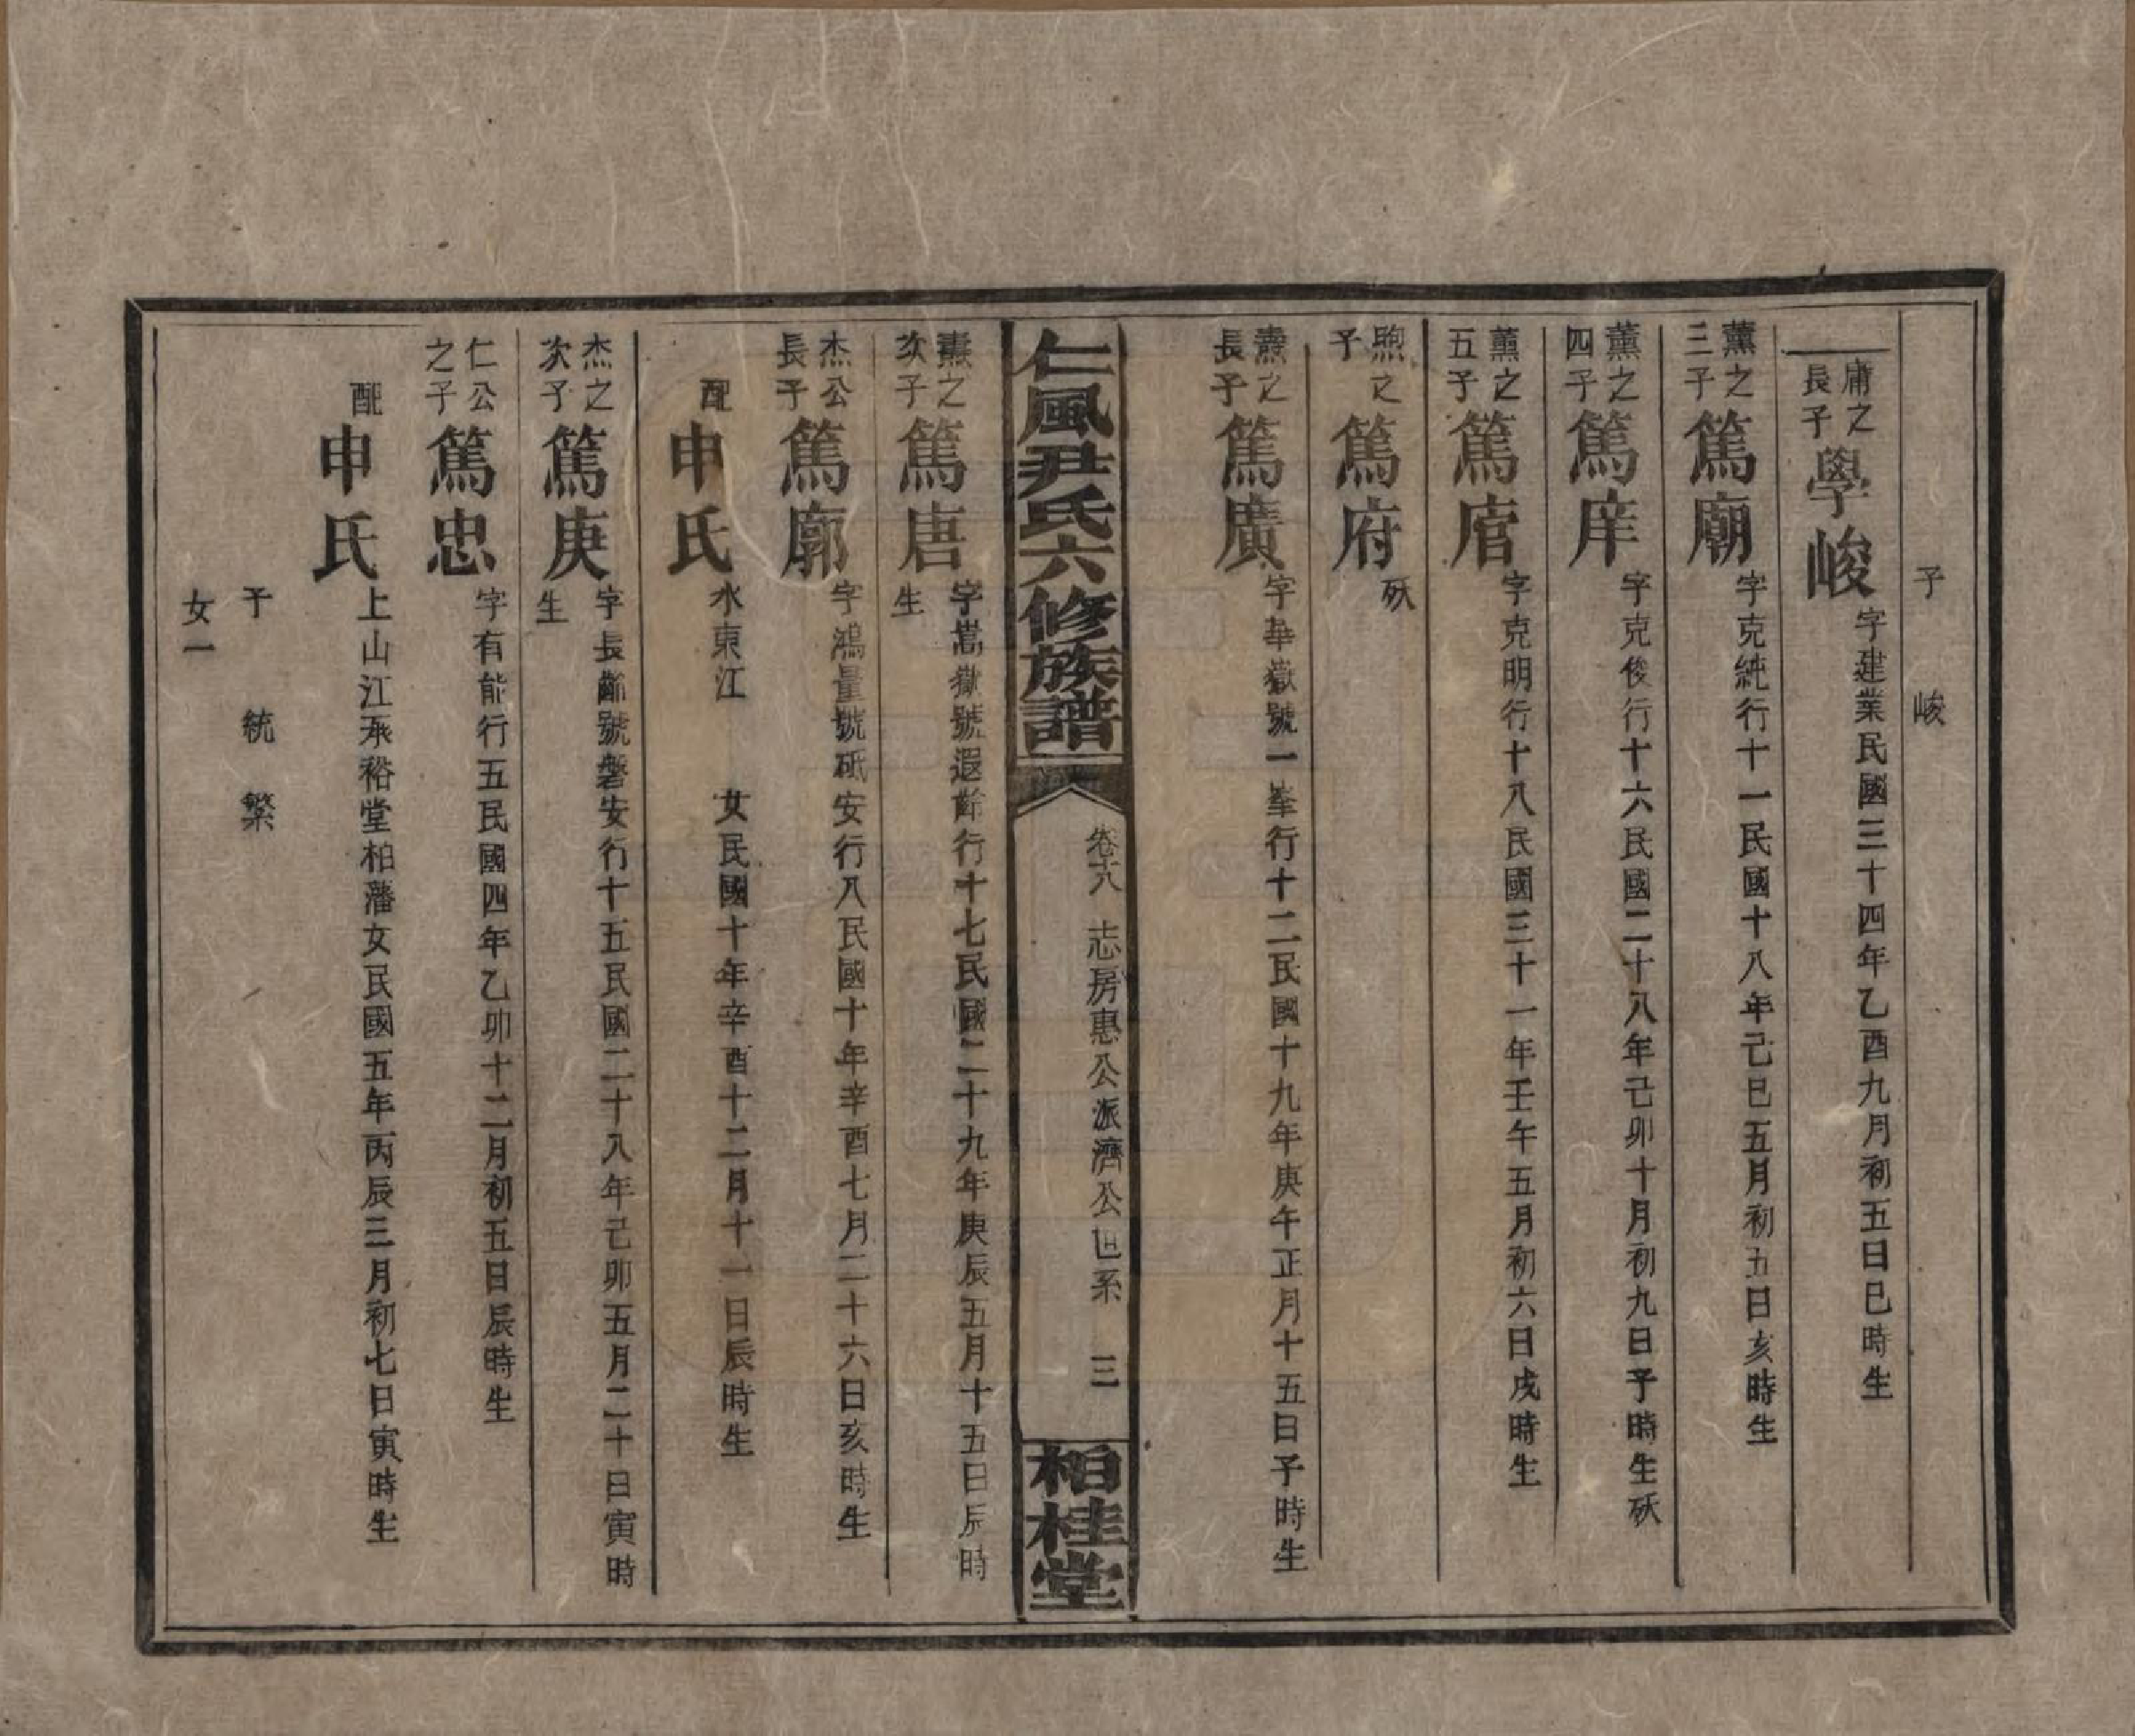 子　峻
庸之長子 學峻 字建業民國三十四年乙酉九月初五日巳時生
薰之三子 篤廟 字克純行十一民國十八年己巳五月初五日亥時生
薰之四子 篤庠 字克俊行十六民國二十八年己卯十月初九日子時生殀
薰之五子 篤㡴 字克明行十八民國三十一年壬午五月初六日戌時生
煦之子 篤府 殀
燾之長子 篤廣 字華嶽號一峯行十二民國十九年庚午正月十五日子時生
仁風尹氏六修族譜 卷十八 志房惠公派濟公世系 三 柏桂堂
燾之次子 篤唐 字嵩嶽號遐齡行十七民國二十九年庚辰五月十五日辰時
生
杰公長子 篤廓 字鴻量號砥安行八民國十年辛酉七月二十六日亥時生
配 申氏 水東江　女民國十年辛酉十二月十一日辰時生
杰之次子 篤庚 字長齡號磐安行十五民國二十八年己卯五月二十日寅時
生
仁公之子 篤忠 字有能行五民國四年乙卯十二月初五日辰時生
配 申氏 上山江承裕堂柏藩女民國五年丙辰三月初七日寅時生
子　統　繁
女一